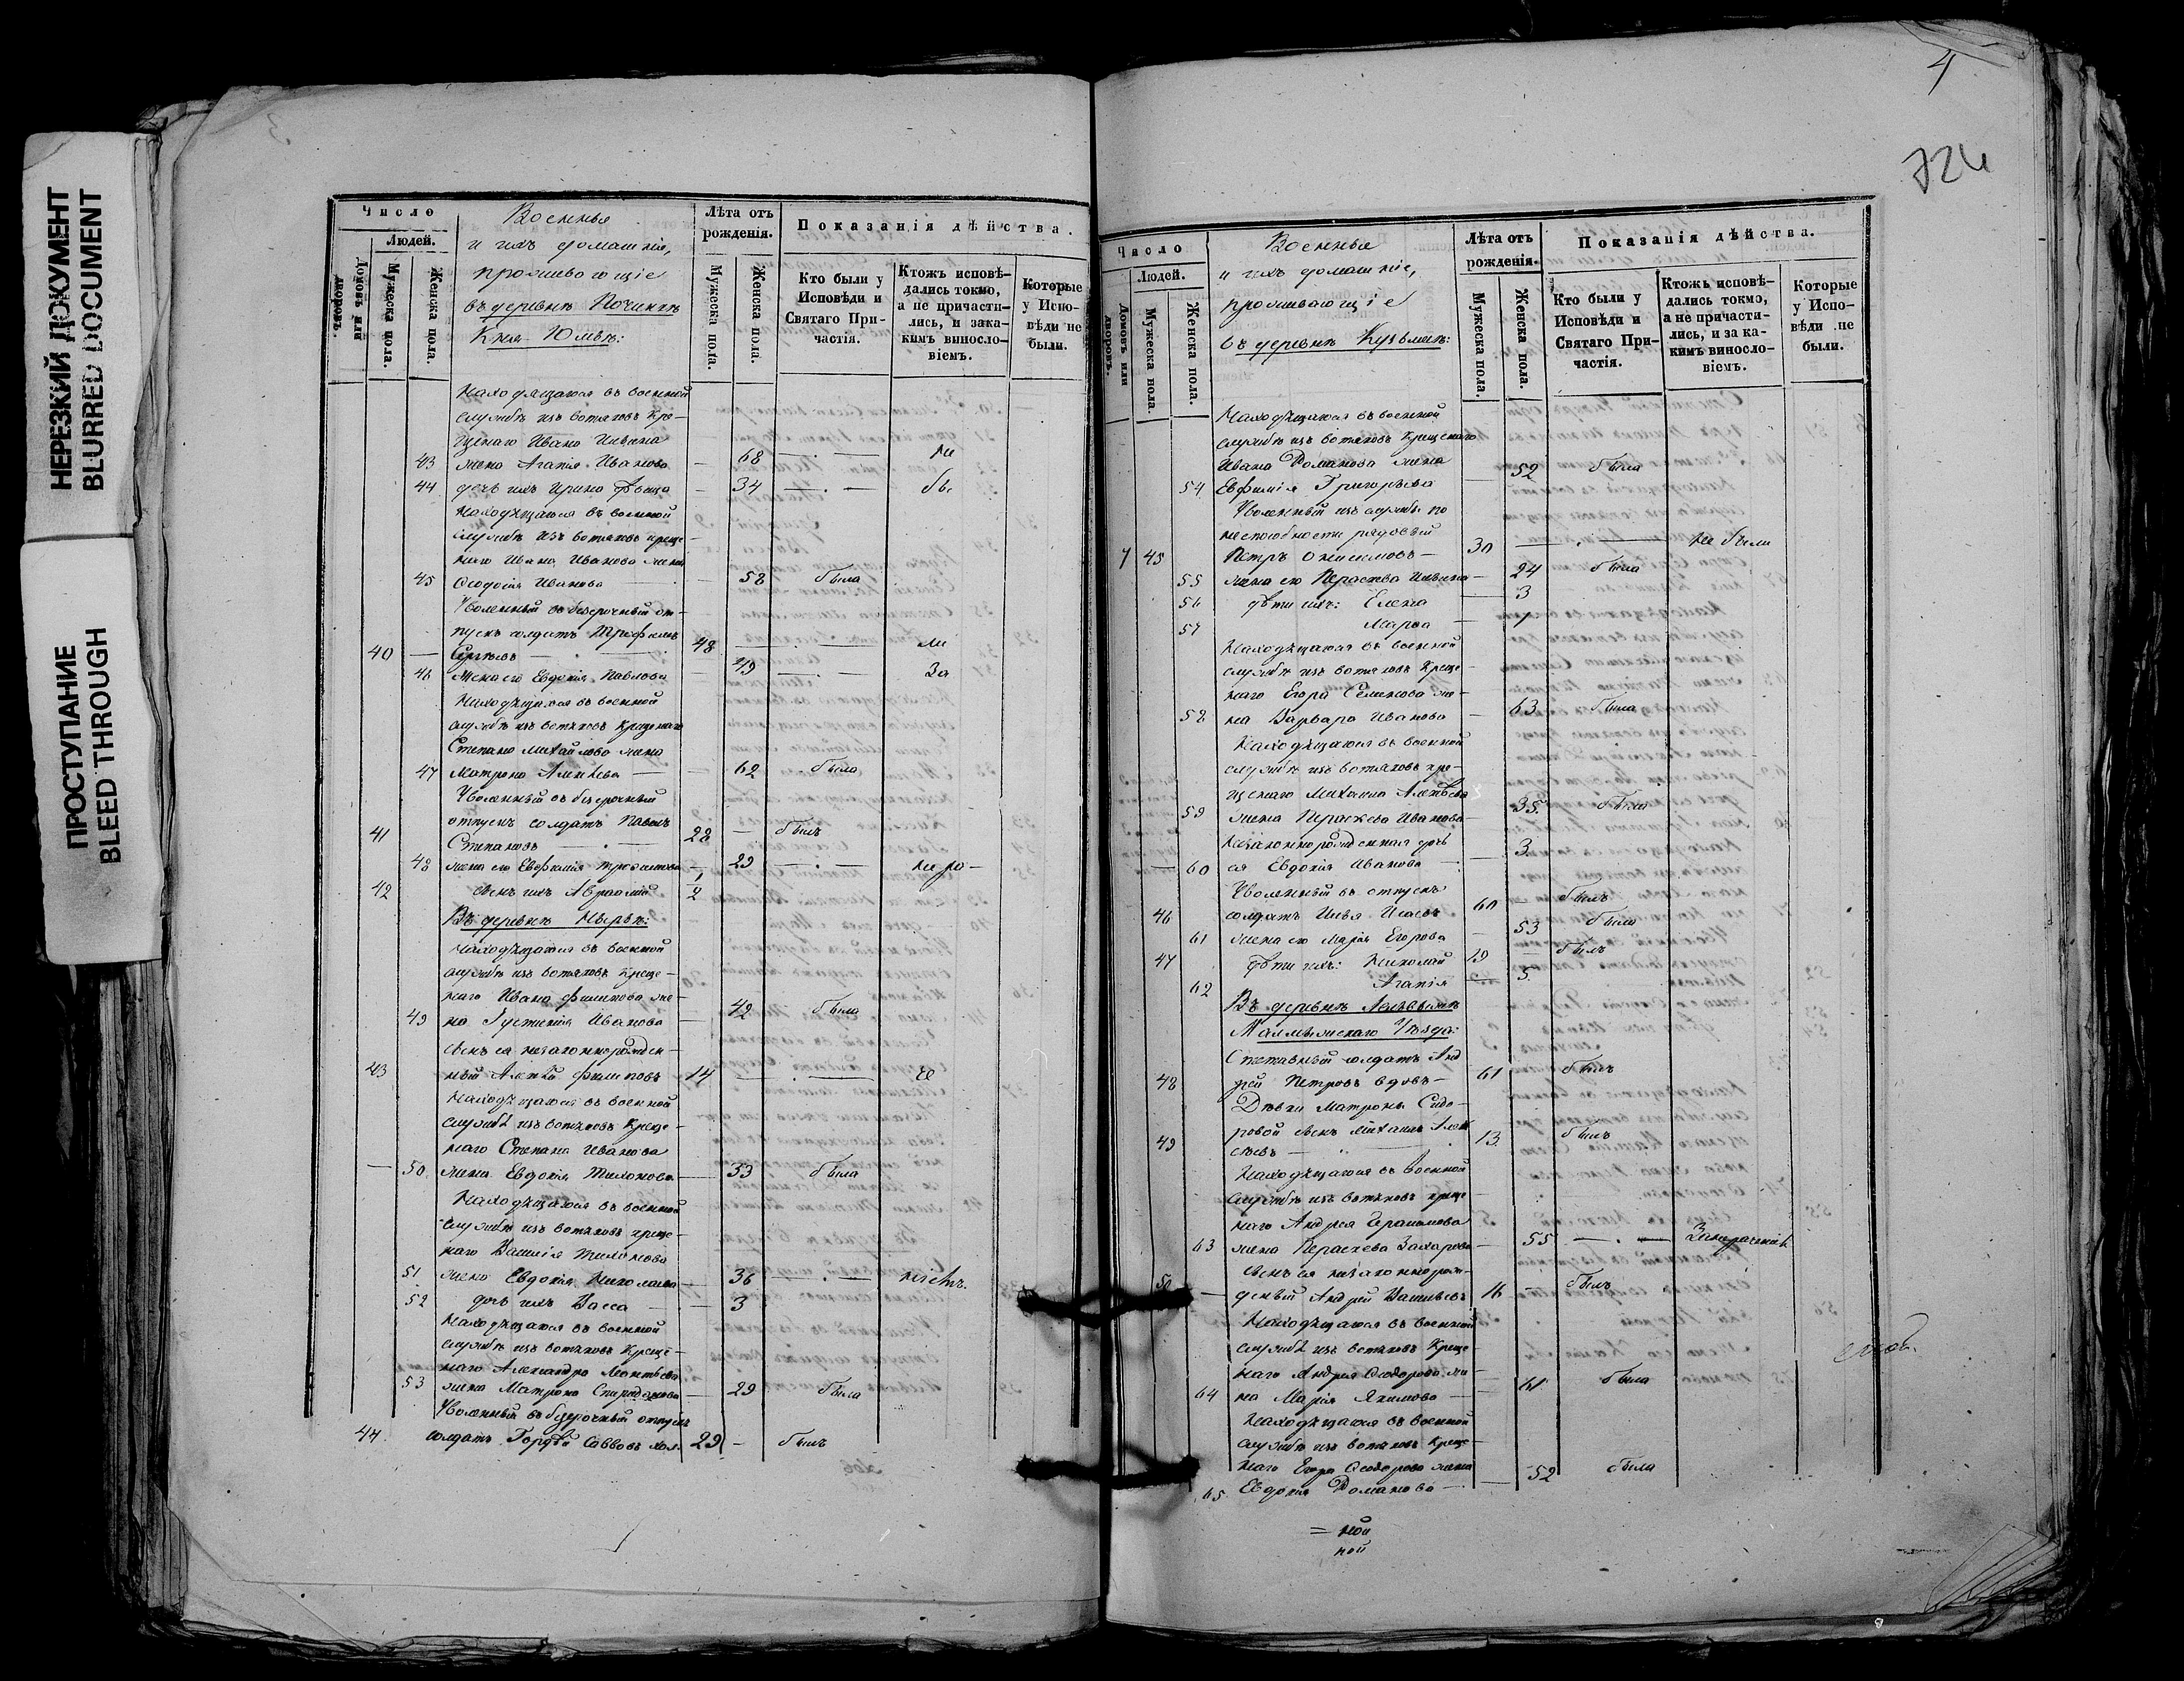 НЕРЕЗКИЙ ДОКУМЕНТ
BLURRED DOCUMENT
ПРОСТУПАНИЕ
BLEED THROUGH
Число
Людей.
Домовъ или дворовъ.
Мужеска пола.
Женска пола.
Военные
и ихъ домашніе,
проживающіе
въ деревнѣ Починкѣ
Кня Юмьѣ:
Лѣта отъ рожденія.
Мужеска пола.
Женска пола.
Показанія дѣйства.
Кто были у Исповѣди и Святаго Причастія.
Ктожъ исповѣдались токмо, а не причастились, и закакимъ винословіемъ.
Которые у Исповѣди не были.
Находящагося въ военной
службѣ изъ вотяковъ кре-
щенаго Ивана
43 жена Агапія Иванова — 68 — . — не
44 дочь ихъ Ирина — 34 — . — бы
Находящагося въ военной
службѣ изъ вотяковъ креще-
наго Ивана Иванова жена
45 Ѳеодосія Иванова — 58 была
Уволенный въ безсрочный от-
пускъ солдатъ Трофимъ
40 — Сергѣевъ 48 — . — ли
46 жена его Евдокія Павлова — 49 — . — За
Находящагося въ военной
службѣ изъ вотяковъ крещенаго
Степана Михайлова жена
47 Матрона Алексѣева — 62 была
Уволенный въ безсрочный
отпускъ солдатъ Павелъ
41 Степановъ — . — 28 — былъ
48 жена его Евфимія — 29 — . — неро-
42 сынъ ихъ Авраамій 1/2
Въ деревнѣ Нырьѣ:
Находящагося въ военной
службѣ изъ вотяковъ креще-
наго Ивана Филипова же-
49 на Іустинія Иванова — 42 была
сынъ ея незаконнорожден-
43 ный Алексѣй Филиповъ 14 — . —
Находящагося въ военной
службѣ изъ вотяковъ креще-
наго Степана Иванова
— 50. жена Евдокія Тихонова — 33 была
Находящагося въ военной
службѣ изъ вотяковъ креще-
наго Василія Тихонова
51 жена Евдокія Николаева — 36 — . — ніемъ.
52 дочь ихъ Васса — 3
Находящагося въ военной
службѣ изъ вотяковъ креще-
наго Александра Леонтьева
53 жена Матрона Спиридонова — 29 была
Уволенный въ безсрочный отпускъ
44. солдатъ Гордѣй Саввовъ хол. 29 — былъ
4
724
Число
Людей.
Домовъ или дворовъ.
Мужеска пола.
Женска пола.
Военные
и ихъ домашніе,
проживающіе
въ деревнѣ Кузьмѣ:
Лѣта отъ рожденія.
Мужеска пола.
Женска пола.
Показанія дѣйства.
Кто были у Исповѣди и Святаго Причастія.
Ктожъ исповѣдались токмо, а не причастились, и за какимъ винословіемъ.
Которые у Исповѣди не были.
Находящагося въ военной
службѣ изъ вотяковъ крещенаго
Ивана Романова жена
54 Евфимія Григорьева — 52 была
Уволенный изъ службы по
неспособности рядовый
7 45 Петръ Онисимовъ — 30 — . — не были
55 жена его Параскева — 24 была
56 дѣти ихъ: Елена — 3
57 Марѳа — 1
Находящагося въ военной
службѣ изъ вотяковъ креще-
наго Егора Семенова же-
58 на Варвара Иванова — 63 была
Находящагося въ военной
службѣ изъ вотяковъ кре-
щенаго Михаила Алексѣева
59 жена Параскева Иванова — 35. была
Незаконнорожденная дочь
— 60 ея Евдокія Иванова — 3.
Уволенный въ отпускъ
46 солдатъ Илья Исаевъ 60 — былъ
61 жена его Марія Егорова — 53 была
47 дѣти ихъ: Николай 19 — былъ
62 Агапія — 5.
Въ деревнѣ
Малмыжскаго Уѣзда:
Отставный солдатъ Анд
48 рей Петровъ вдовъ — 61 былъ
Дѣвки Матроны Сидо-
49 ровой сынъ Михаилъ Алек 13. былъ
сѣевъ
Находящагося въ военной
службѣ изъ вотяковъ креще-
наго Андрея Герасимова
63 жена Параскева Захарова — 55 — . —
сынъ ея незаконнорож-
50 — денный Андрей Васильевъ 16 — былъ
Находящагося въ военной
службѣ изъ вотяковъ креще-
наго Андрея Ѳеодорова же-
64 на Марія Якимова — 61 была
Находящагося въ военной
службѣ изъ вотяковъ креще-
наго Егора Ѳеодорова жена
65. Евдокія Романова — 52 была
= ной
ной